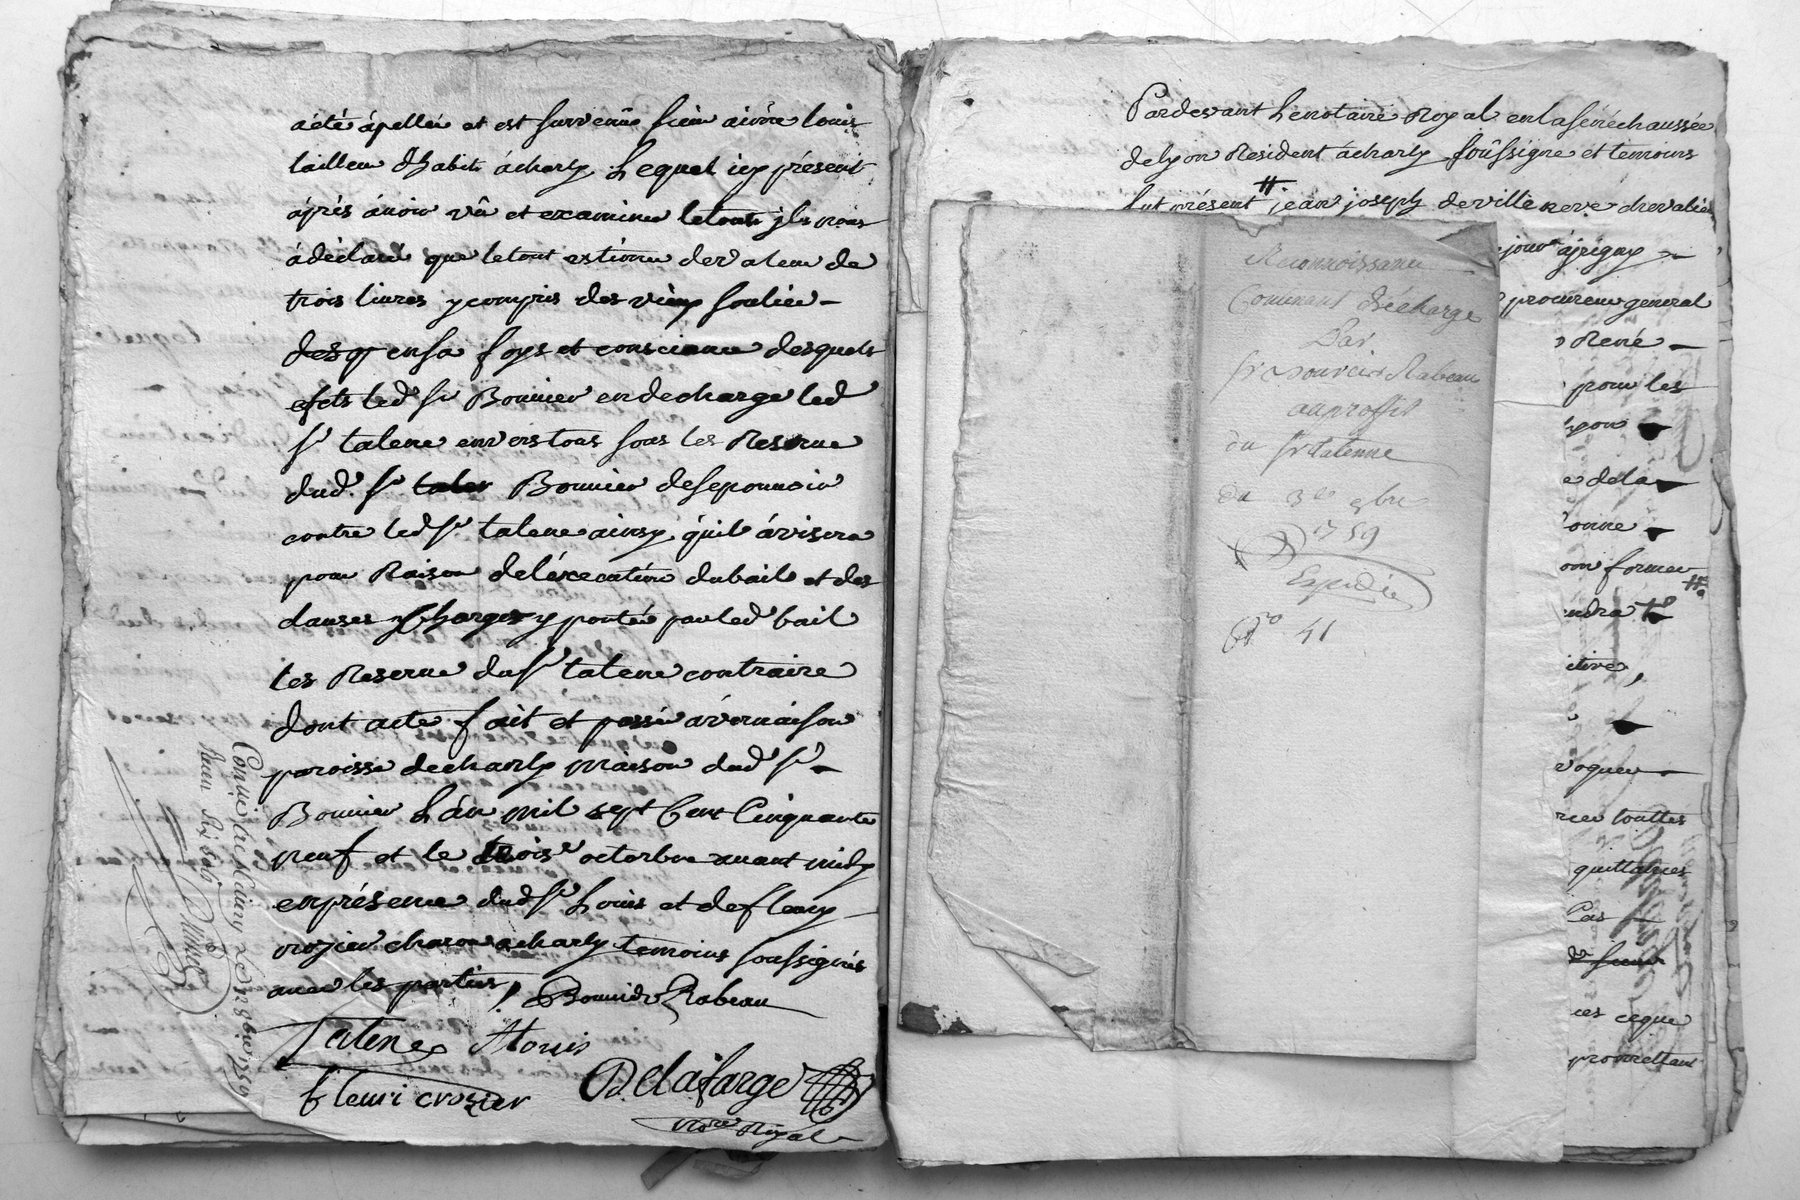 a été apellée et est survenu sieur aimé louis
tailleur d'habit à charly Lequel icy présent
áprés ávoir vû et examiner le tout jl nous
à déclaré que le tout est jcy de valeur de
trois livres y compris des vieux soulier
des q. en sa foys et conscience desquels
efets led sr Bonnier en decharge led
sr talene envers tous sous les Reserve
dud. sr taler Bonnier de se pourvoir
contre led sr talene ainsy qu'il ávisera
pour Raison de léxecution du bail et des
clauses & Charges y portée par led bail
les Reserve du sr talene contraire
dont acte fait et passé á vernaison
paroisse de charly maison dud sr
Bonnier L'an mil sept Cent Cinquante
neuf et le troise octobre avant midy
en présence dud sr Louis et de fleury
crozier charon a charly temoins soussignés
avec les parties
Bonnier Rabeau
Talene Alouis
fleuri crozier Delafarge
Nore Royal
Conné à st Genis Le 8bre 1759
Reçu six sols
Pardevant Le notaire Royal en la sénéchaussée
de lyon Resident à charly soussigne et temoins
fut présent jean joseph de villeneve chevalier
Reconnoissance
Contenant décharge
Par
sr Rabeau
au proffit
du sr talenne
du 3e 8bre
1759
Expedie
No 41
jour
procureur general
René
pour les
lyon
e dela
onne
former
endra
itive,
voquer
toutes
quittances
Cas
ces ceque
promettant